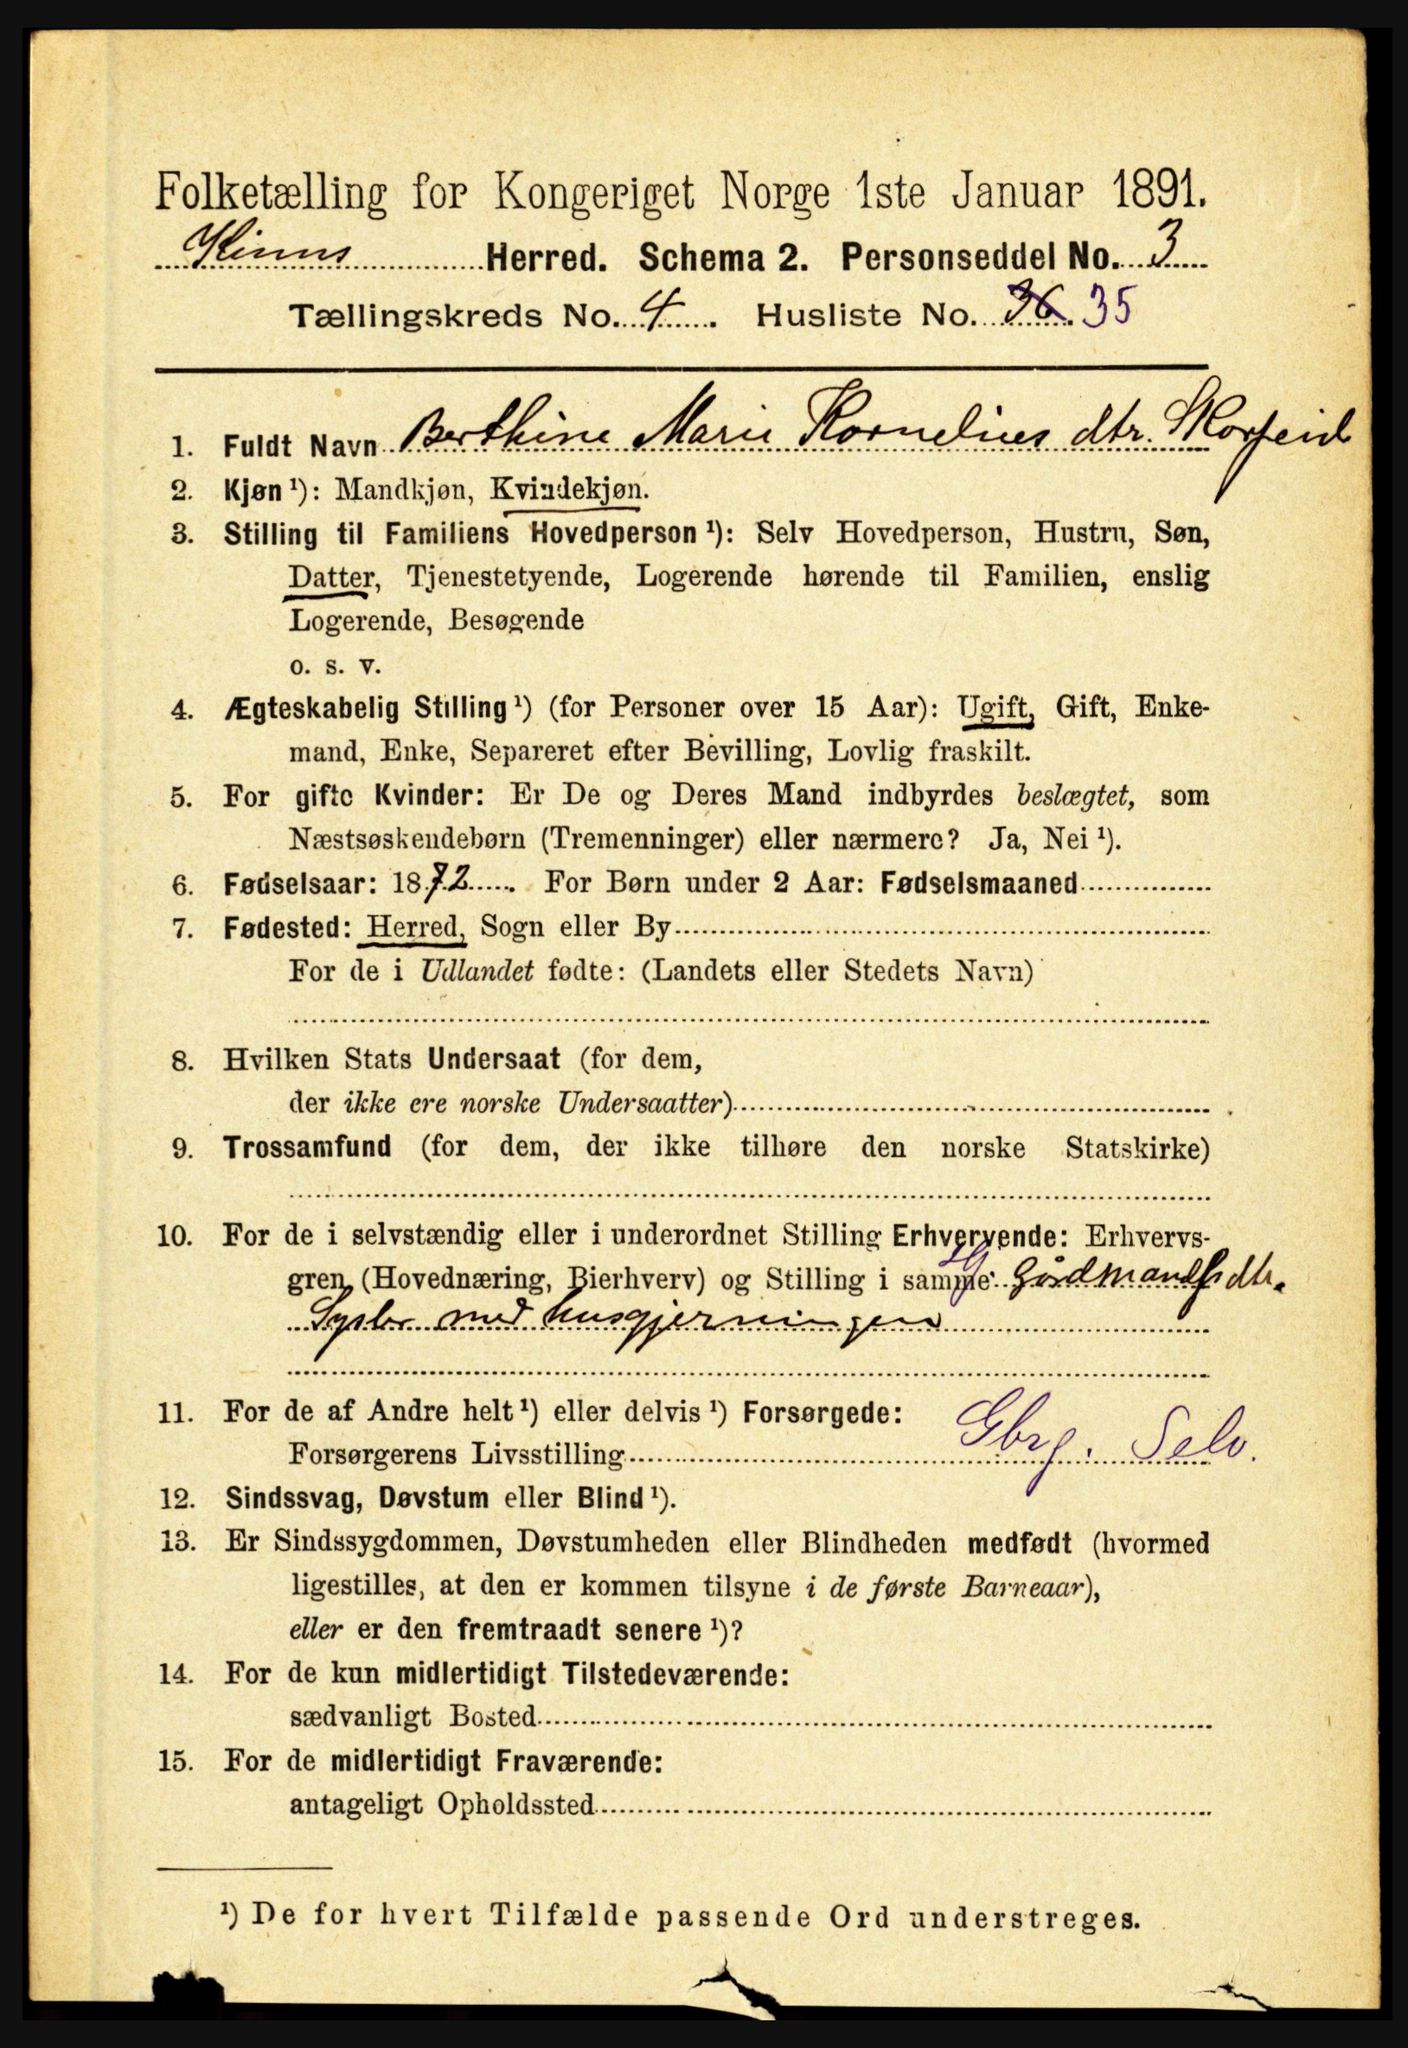 Folketælling for Kongeriget Norge 1ste Januar 1891.
Kinns Herred. Schema 2. Personseddel No. 3
Tællingskreds No. 4. Husliste No. 36. 35
1. Fuldt Navn Berthine Marie Kornelius dtr. Skorpeid
2. Kjøn ¹): Mandkjøn, Kvindekjøn.
3. Stilling til Familiens Hovedperson ¹): Selv Hovedperson, Hustru, Søn,
Datter, Tjenestetyende, Logerende hørende til Familien, enslig
Logerende, Besøgende
o. s. v.
4. Ægteskabelig Stilling ¹) (for Personer over 15 Aar): Ugift, Gift, Enke-
mand, Enke, Separeret efter Bevilling, Lovlig fraskilt.
5. For gifte Kvinder: Er De og Deres Mand indbyrdes beslægtet, som
Næstsøskendebørn (Tremenninger) eller nærmere? Ja, Nei ¹).
6. Fødselsaar: 1872. For Børn under 2 Aar: Fødselsmaaned
7. Fødested: Herred, Sogn eller By
For de i Udlandet fødte: (Landets eller Stedets Navn)
8. Hvilken Stats Undersaat (for dem,
der ikke ere norske Undersaatter)
9. Trossamfund (for dem, der ikke tilhøre den norske Statskirke)
10. For de i selvstændig eller i underordnet Stilling Erhvervende: Erhvervs-
gren (Hovednæring, Bierhverv) og Stilling i samme Gårdmands dtr.
Sysler med husgjerningen
11. For de af Andre helt ¹) eller delvis ¹) Forsørgede:
Forsørgerens Livsstilling Gbrg. Selv.
12. Sindssvag, Døvstum eller Blind ¹).
13. Er Sindssygdommen, Døvstumheden eller Blindheden medfødt (hvormed
ligestilles, at den er kommen tilsyne i de første Barneaar),
eller er den fremtraadt senere ¹)?
14. For de kun midlertidigt Tilstedeværende:
sædvanligt Bosted
15. For de midlertidigt Fraværende:
antageligt Opholdssted
¹) De for hvert Tilfælde passende Ord understreges.